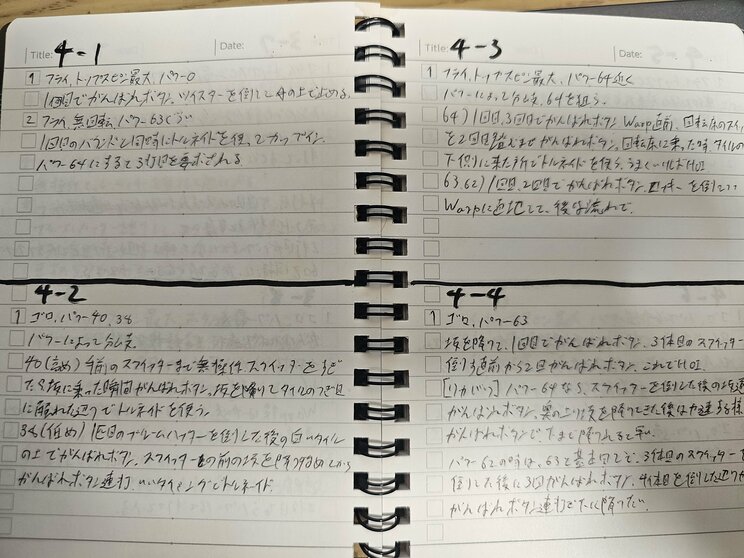 Title: 4-1 Date:
1 フライ、トップスピン最大、パワー0
1回目でがんばれボタン。ツイスターを倒して舟の上で止める。
2 フライ、無回転、パワー63ぐらい
1回目のバウンドと同時にトルネイドを使ってカップイン。
パワー64にすると3打目を要求される
4-2
1 ゴロ、パワー40、38
パワーによって分岐
40(高め) 手前のスクイッシーまで無操作 スクイッシーを
坂に乗った瞬間がんばれボタン。坂を降りてタイルのつぎ目
に触れた辺りでトルネイドを使う。
38(低め) 1匹目のブルームハッターを倒した後の白いタイル
の上でがんばれボタン。スクイッシーの前の坂を
がんばれボタン連打、いいタイミングでトルネイド
Title: 4-3 Date:
1 フライ、トップスピン最大、パワー64近く
パワーによって分岐、64を狙う。
64) 1回目、3回目でがんばれボタン Warp直前、回転床のスイ
を2回踏ませがんばれボタン。回転床に乗った時タイルの
下側に来た所でトルネイドを使う。うまくいけばHOI
63,62) 1回目、2回目でがんばれボタン。 を倒して
Warpに直地して、後は流れで。
4-4
1 ゴロ、パワー63
坂を降りて、1回目でがんばれボタン、3体目のスクイッシー
倒す直前から2回がんばれボタン。これでHOI
[リカバリー] パワー64なら、スクイッシーを倒した後の坂道
がんばれボタン、裏の上り坂を降りてきた後は加速する様
がんばれボタンで下まで降りれると早い。
パワー62の時は、63と基本同じで、3体目のスクイッシーを
倒した後に3回がんばれボタン、4体目を倒した辺り
がんばれボタン連打で穴に